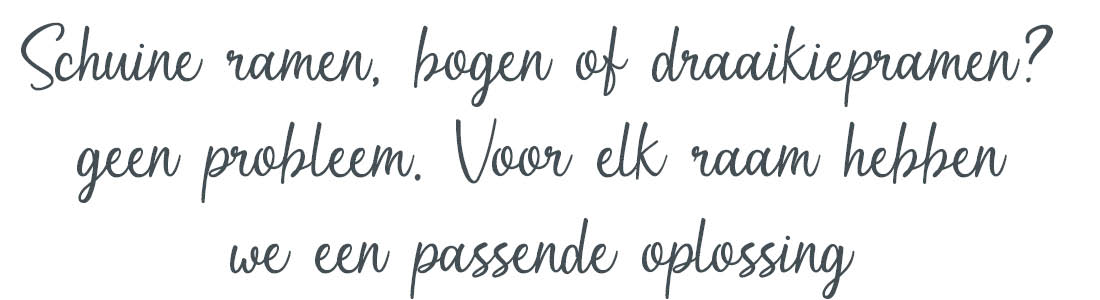 Schuine ramen, bogen of draaikiepramen?
geen probleem. Voor elk raam hebben
we een passende oplossing